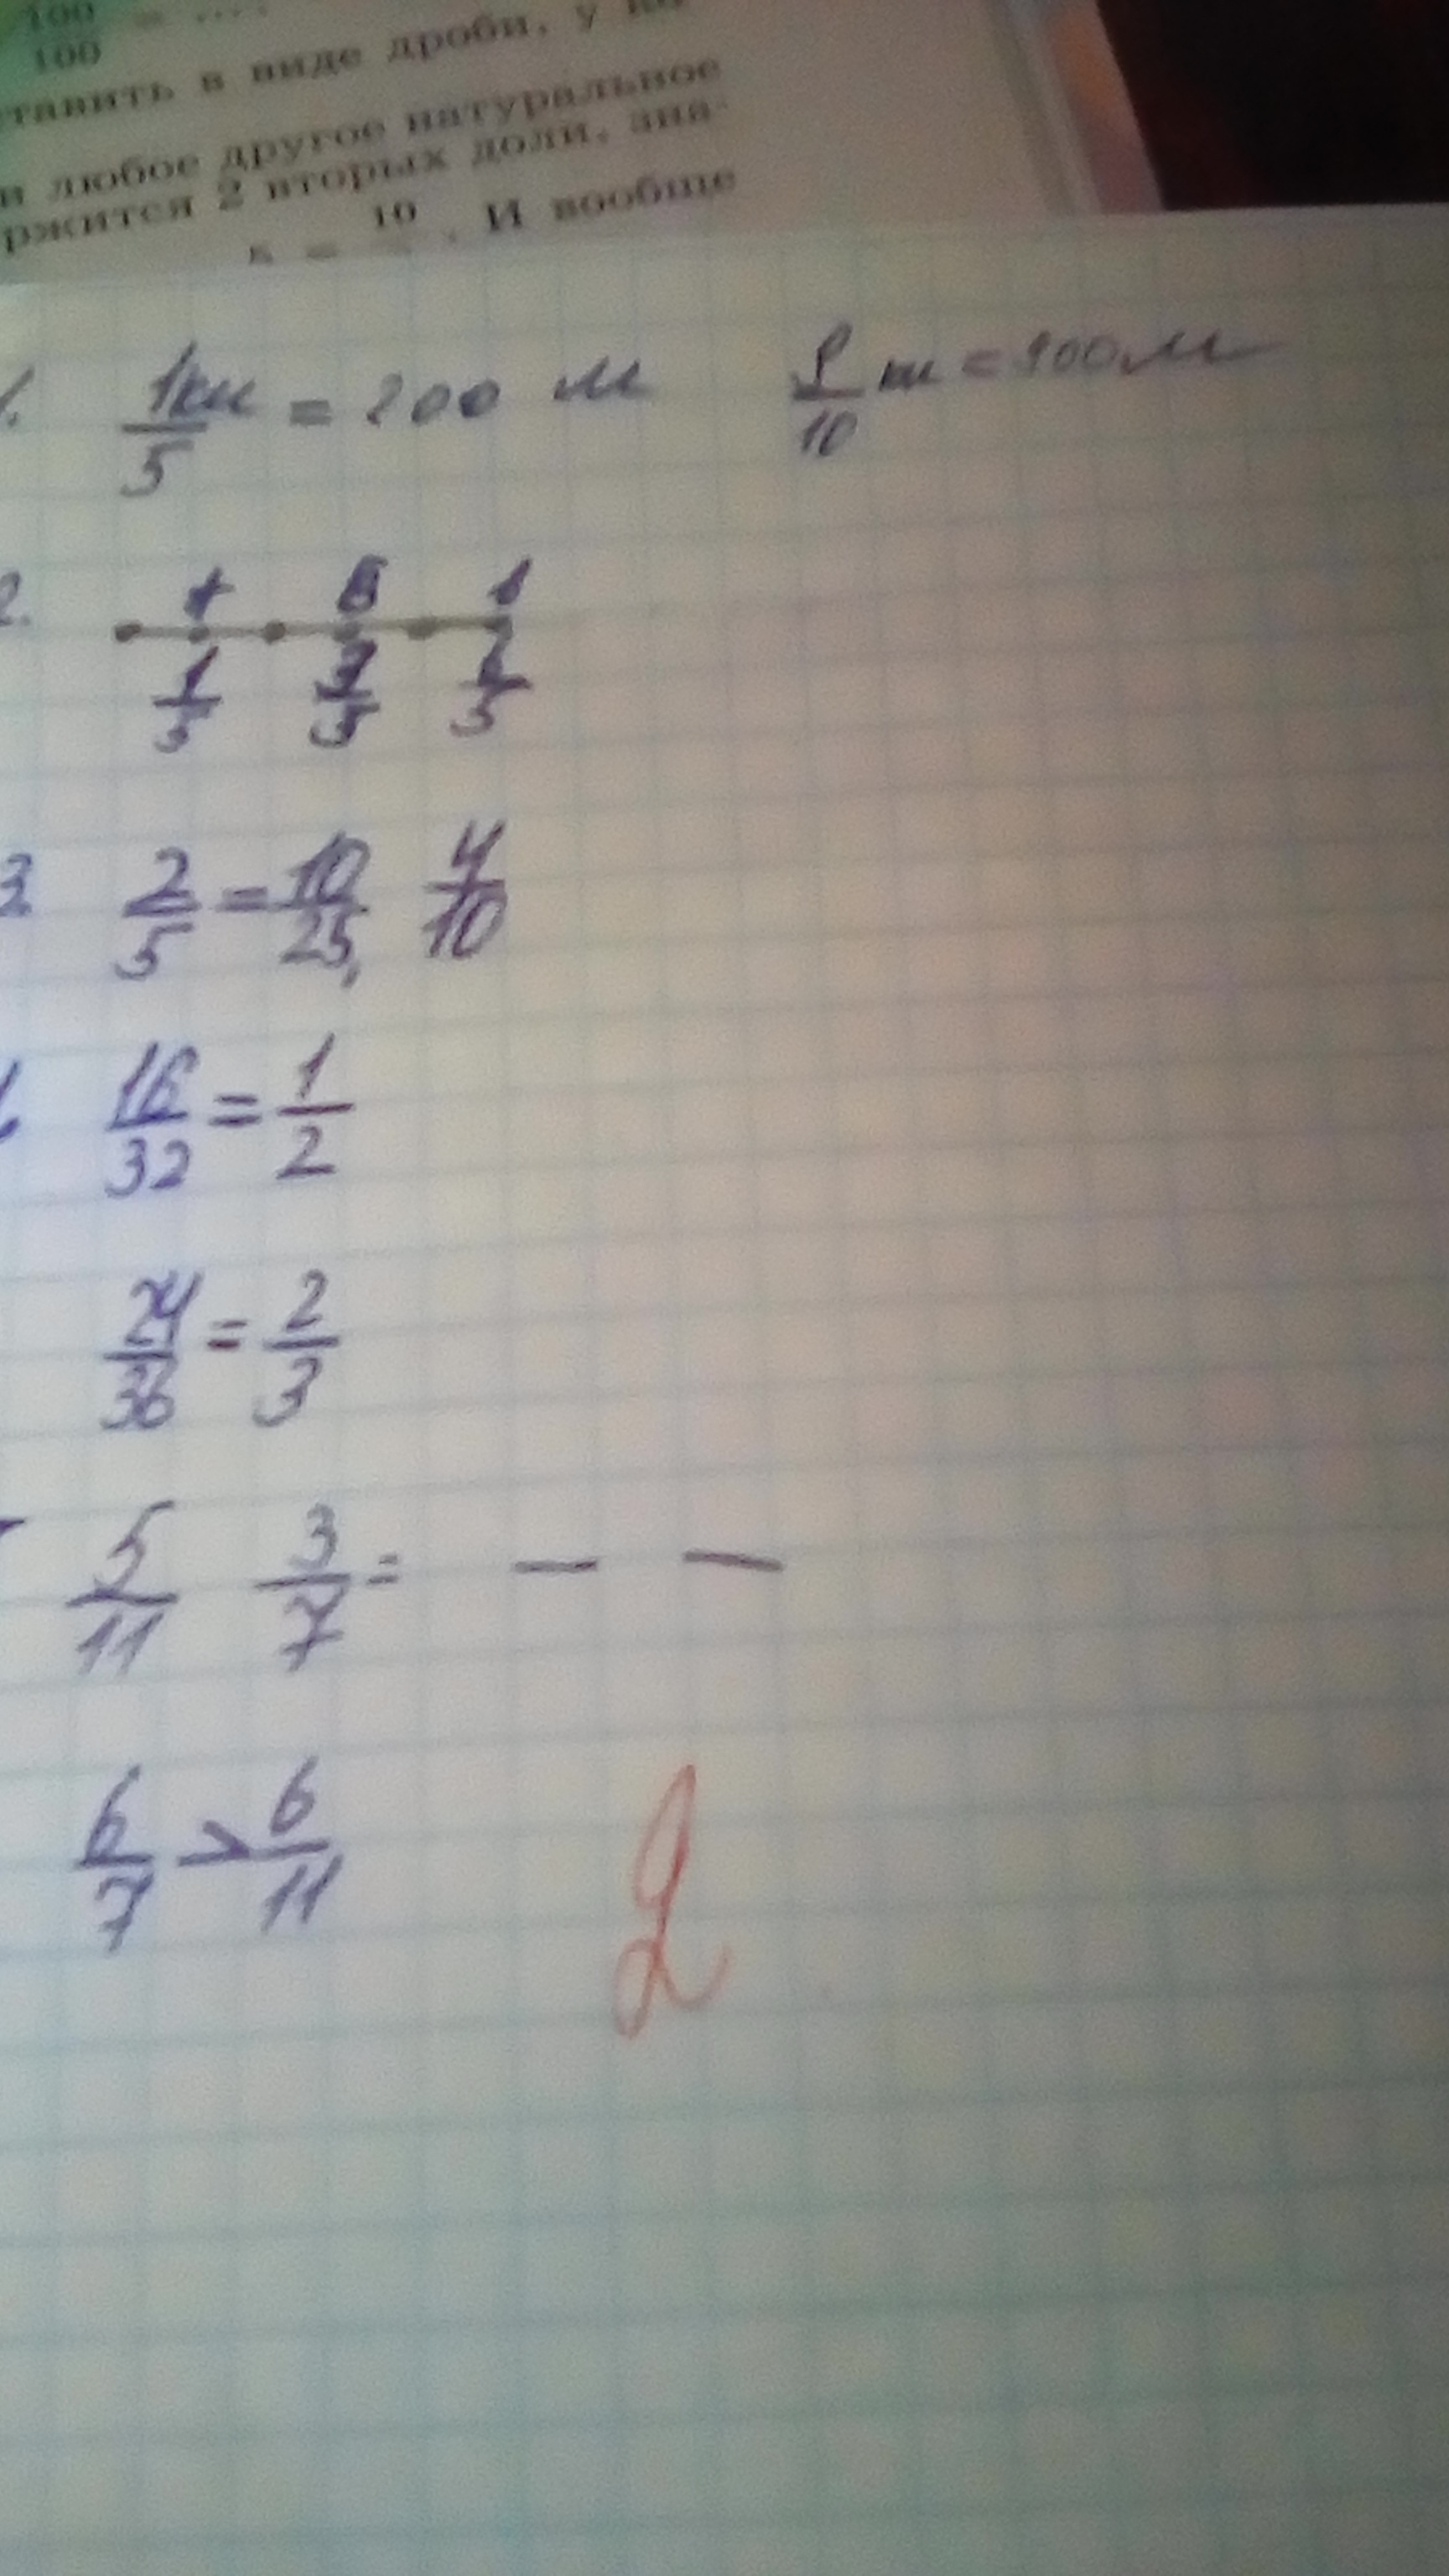 100
100 = ....
тавить в виде дроби, у
и любое другое натуральное
ржится 2 вторых доли, зна-
5 = 10 . И вообще
1. 1/5 км = 200 м 9/10 км = 900 м
2.
1/5 3/5
3. 2/5 = 10/25, 4/10
16/32 = 1/2
24/36 = 2/3
5/11 3/7 = — —
6/7 > 6/11
2